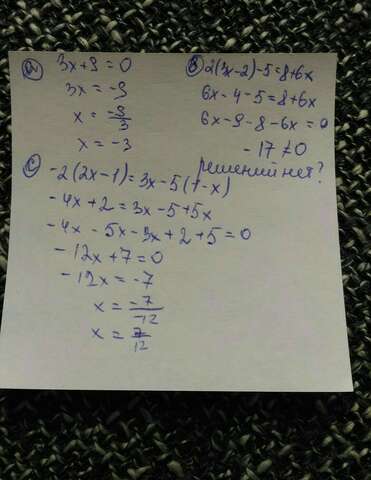 a) 3x+9=0
3x = -9
x = -9/3
x = -3
в) 2(3x-2)-5=8+6x
6x-4-5=8+6x
6x-9-8-6x=0
-17≠0
решений нет?
c) -2(2x-1)=3x-5(1-x)
-4x+2=3x-5+5x
-4x-5x-3x+2+5=0
-12x+7=0
-12x=-7
x = -7/-12
x = 7/12